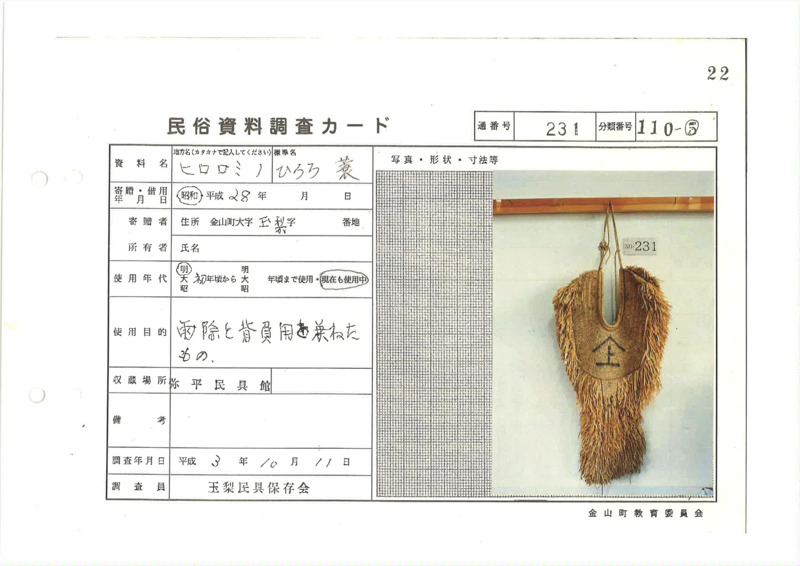 22
民俗資料調査カード
通番号 231 分類番号 110-⑤
資料名 地方名(カタカナで記入してください) 標準名
ヒロロミノ ひろろ蓑
寄贈・借用年月日 昭和・平成 28年 月 日
寄贈者 住所 金山町大字 玉梨 字 番地
所有者 氏名
使用年代 明 大 昭 初年頃から 明 大 昭 年頃まで使用・現在も使用中
使用目的 雨除と背負用を兼ねた
もの.
収蔵場所 弥平民具館
備考
調査年月日 平成 3年 10月 11日
調査員 玉梨民具保存会
写真・形状・寸法等
NO.231
上
金山町教育委員会